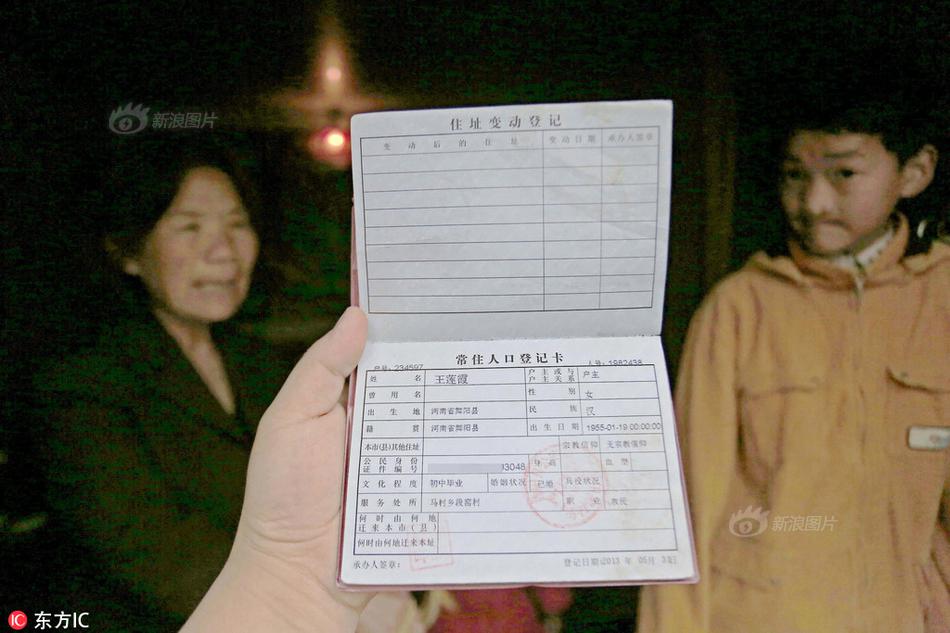 新浪图片
住址变动登记
变动后的住址 变动日期 承办人签章
常住人口登记卡
户号:234597 人号:1982438
姓名 王莲霞 户主或与户主关系 户主
曾用名 性别 女
出生地 河南省舞阳县 民族 汉
籍贯 河南省舞阳县 出生日期 1955-01-19 00:00:00
本市(县)其他住址 宗教信仰 无宗教信仰
公民身份证件编号 3048 身高 血型
文化程度 初中毕业 婚姻状况 已婚 兵役状况
服务处所 马村乡段窑村 职业 农民
何时由何地迁来本市(县)
何时由何地迁来本址
承办人签章: 登记日期:2013 年 05月
新浪图片
东方IC